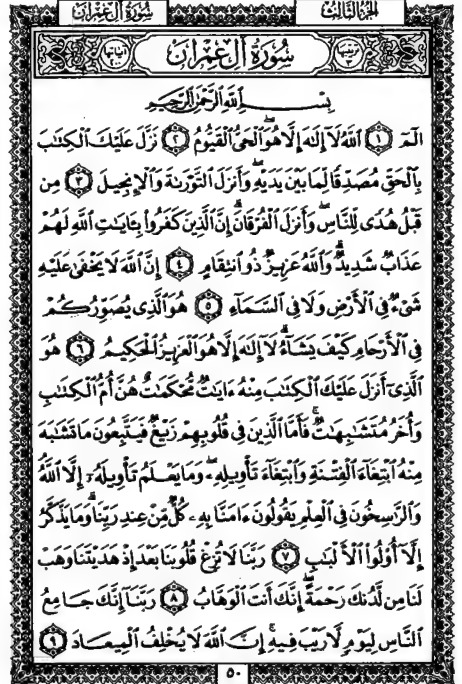 سُورَةُ آلِ عِمْرَانَ الجزء الثالث
سُورَةُ آلِ عِمْرَانَ
بِسْمِ ٱللَّهِ ٱلرَّحْمَٰنِ ٱلرَّحِيمِ
الٓمٓ ١ ٱللَّهُ لَآ إِلَٰهَ إِلَّا هُوَ ٱلْحَىُّ ٱلْقَيُّومُ ٢ نَزَّلَ عَلَيْكَ ٱلْكِتَٰبَ
بِٱلْحَقِّ مُصَدِّقًا لِّمَا بَيْنَ يَدَيْهِ وَأَنزَلَ ٱلتَّوْرَىٰةَ وَٱلْإِنجِيلَ ٣ مِن
قَبْلُ هُدًى لِّلنَّاسِ وَأَنزَلَ ٱلْفُرْقَانَ ۗ إِنَّ ٱلَّذِينَ كَفَرُوا۟ بِـَٔايَٰتِ ٱللَّهِ لَهُمْ
عَذَابٌ شَدِيدٌ ۗ وَٱللَّهُ عَزِيزٌ ذُو ٱنتِقَامٍ ٤ إِنَّ ٱللَّهَ لَا يَخْفَىٰ عَلَيْهِ
شَىْءٌ فِى ٱلْأَرْضِ وَلَا فِى ٱلسَّمَآءِ ٥ هُوَ ٱلَّذِى يُصَوِّرُكُمْ
فِى ٱلْأَرْحَامِ كَيْفَ يَشَآءُ ۚ لَآ إِلَٰهَ إِلَّا هُوَ ٱلْعَزِيزُ ٱلْحَكِيمُ ٦ هُوَ
ٱلَّذِىٓ أَنزَلَ عَلَيْكَ ٱلْكِتَٰبَ مِنْهُ ءَايَٰتٌ مُّحْكَمَٰتٌ هُنَّ أُمُّ ٱلْكِتَٰبِ
وَأُخَرُ مُتَشَٰبِهَٰتٌ ۖ فَأَمَّا ٱلَّذِينَ فِى قُلُوبِهِمْ زَيْغٌ فَيَتَّبِعُونَ مَا تَشَٰبَهَ
مِنْهُ ٱبْتِغَآءَ ٱلْفِتْنَةِ وَٱبْتِغَآءَ تَأْوِيلِهِۦ ۗ وَمَا يَعْلَمُ تَأْوِيلَهُۥٓ إِلَّا ٱللَّهُ
وَٱلرَّٰسِخُونَ فِى ٱلْعِلْمِ يَقُولُونَ ءَامَنَّا بِهِۦ كُلٌّ مِّنْ عِندِ رَبِّنَا ۗ وَمَا يَذَّكَّرُ
إِلَّآ أُو۟لُوا۟ ٱلْأَلْبَٰبِ ٧ رَبَّنَا لَا تُزِغْ قُلُوبَنَا بَعْدَ إِذْ هَدَيْتَنَا وَهَبْ
لَنَا مِن لَّدُنكَ رَحْمَةً ۚ إِنَّكَ أَنتَ ٱلْوَهَّابُ ٨ رَبَّنَآ إِنَّكَ جَامِعُ
ٱلنَّاسِ لِيَوْمٍ لَّا رَيْبَ فِيهِ ۚ إِنَّ ٱللَّهَ لَا يُخْلِفُ ٱلْمِيعَادَ ٩
٥٠